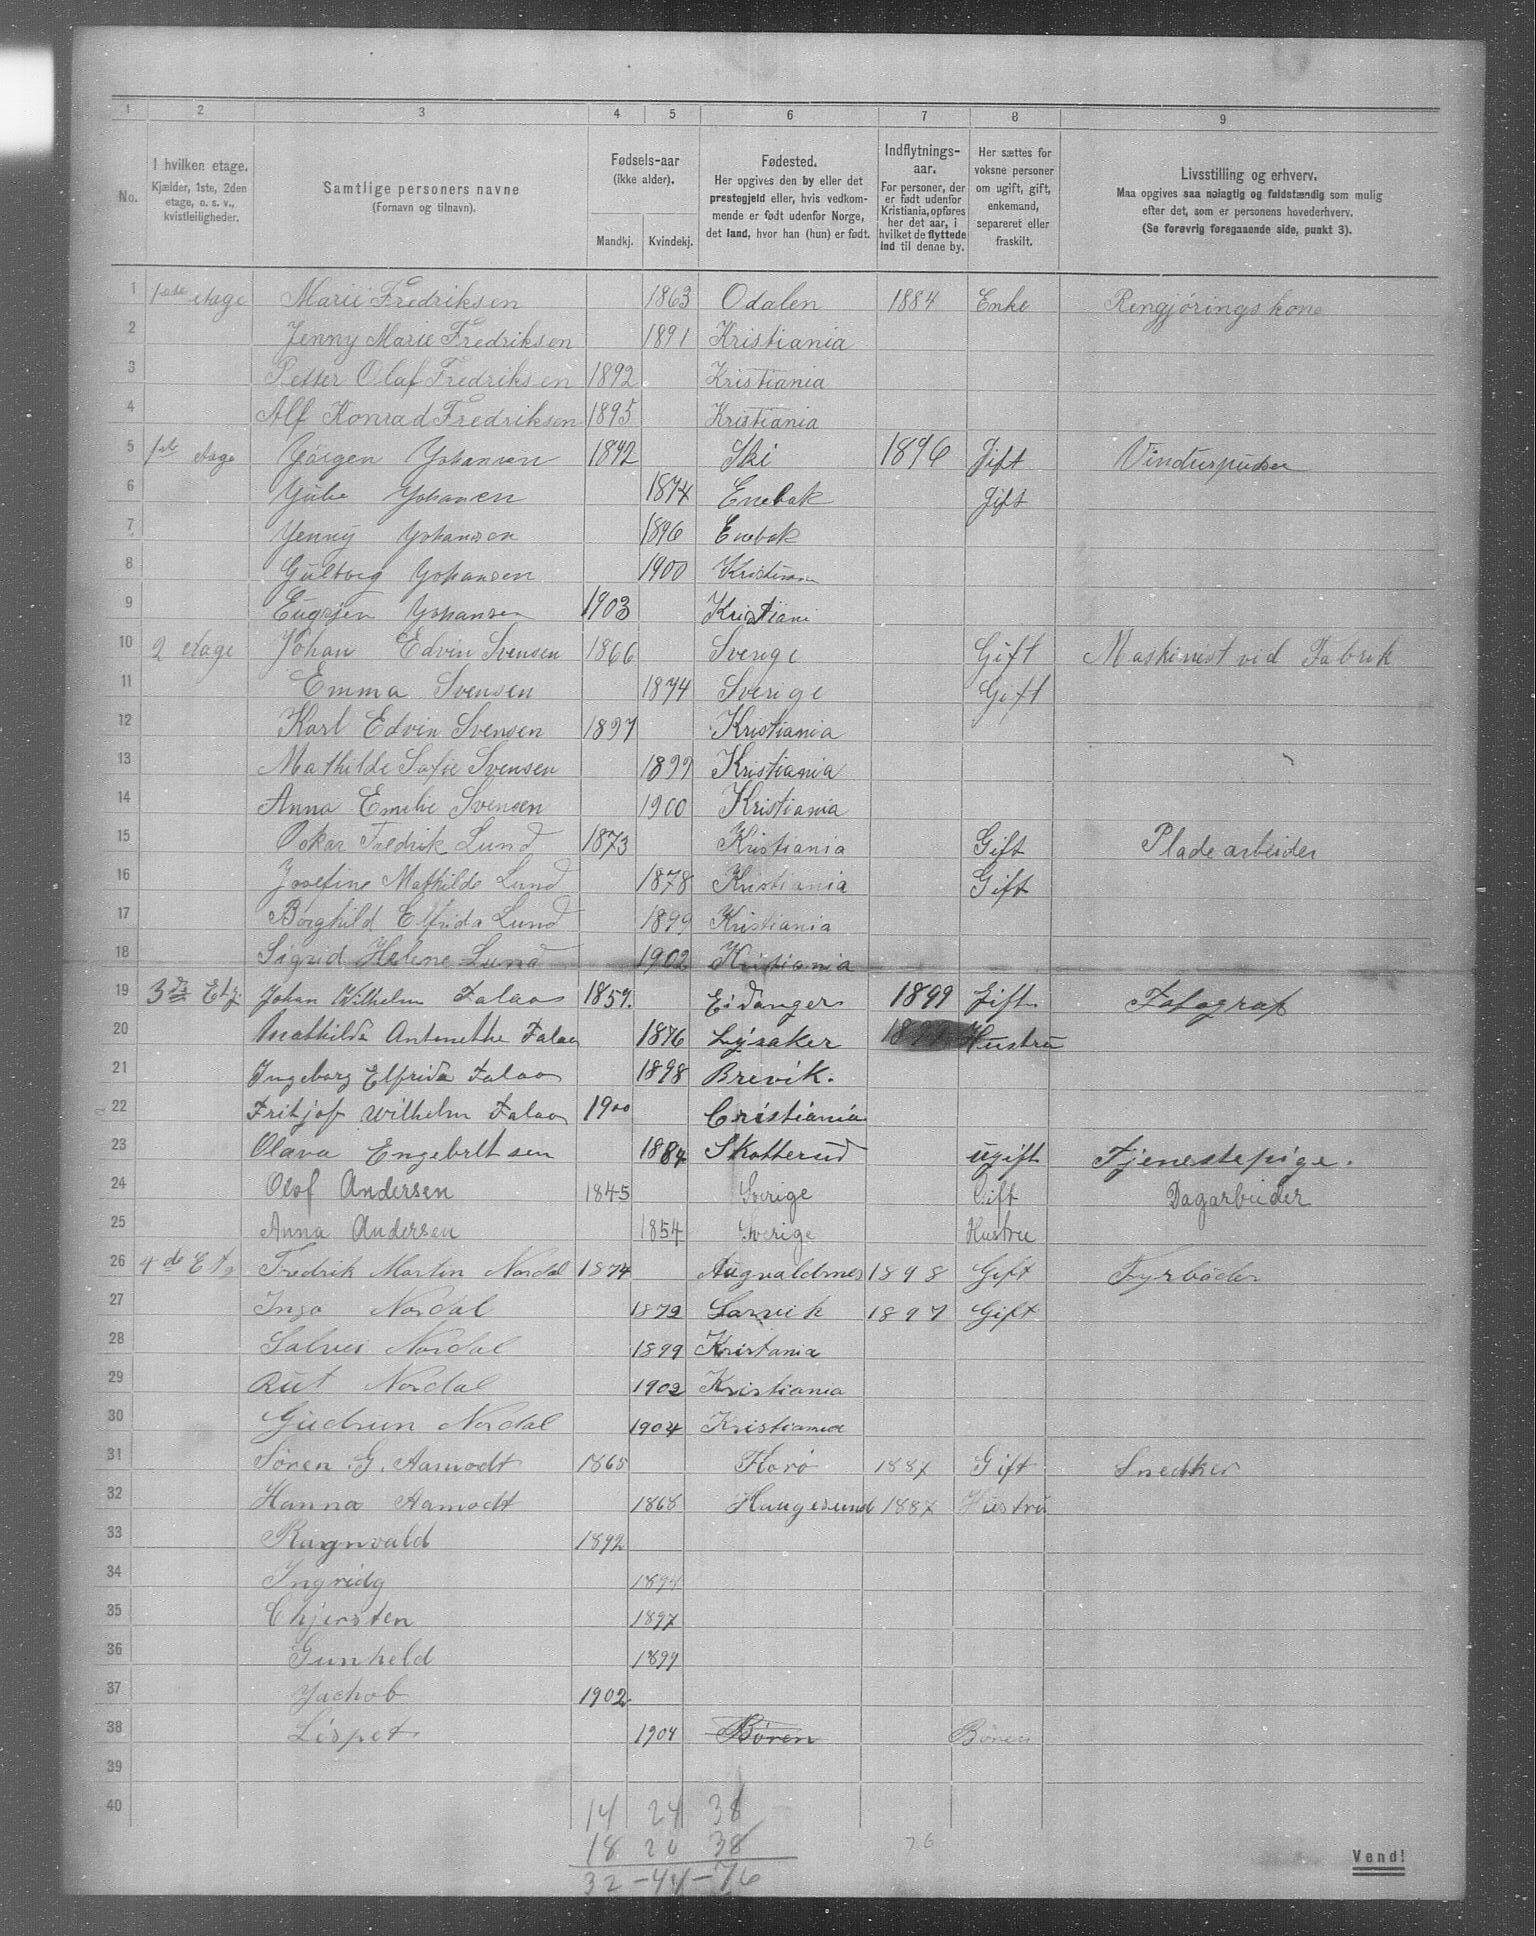 1 2 3 4 5 6 7 8 9
No.
I hvilken etage.
Kjælder, 1ste, 2den
etage, o. s. v.,
kvistleiligheder.
Samtlige personers navne
(Fornavn og tilnavn).
Fødsels-aar
(ikke alder).
Mandkj. Kvindekj.
Fødested.
Her opgives den by eller det
prestegjeld eller, hvis vedkom-
mende er født udenfor Norge,
det land, hvor han (hun) er født.
Indflytnings-
aar.
For personer, der
er født udenfor
Kristiania, opføres
her det aar, i
hvilket de flyttede
ind til denne by.
Her sættes for
voksne personer
om ugift, gift,
enkemand,
separeret eller
fraskilt.
Livsstilling og erhverv.
Maa opgives saa nøiagtig og fuldstændig som mulig
efter det, som er personens hovederhverv.
(Se forøvrig foregaaende side, punkt 3).
1 1ste etage Marie Fredriksen 1863 Odalen 1884 Enke Rengjøringskone
2 Jenny Marie Fredriksen 1891 Kristiania
3 Petter Olaf Fredriksen 1892 Kristiania
4 Alf Konrad Fredriksen 1895 Kristiania
5 1ste etage Jørgen Johansen 1872 Ski 1896 Gift Vinduspudser
6 Johansen 1874 Enebak Gift
7 Jenny Johansen 1896 Enebak
8 Gulborg Johansen 1900
9 Johansen 1903 Kristiani
10 2 etage Johan Edvin Svensen 1866 Sverige Gift Maskinist vid Fabrik
11 Emma Svensen 1874 Sverige Gift
12 Karl Edvin Svensen 1897 Kristiania
13 Mathilde Sofie Svensen 1899 Kristiania
14 Anna Emilie Svensen 1900 Kristiania
15 Oskar Fredrik Lund 1873 Kristiania Gift Pladearbeider
16 Josefine Mathilde Lund 1878 Kristiania Gift
17 Borghild Elfrida Lund 1899 Kristiania
18 Sigrid Helene Lund 1902 Kristiania
19 3die Etg. Johan Wilhelm Falaas 1859. Eidanger 1899 Gift Fotograf
20 Mathilde Antonethe Falaas 1876 Lysaker Hustru
21 Ingeborg Elfrida Falaas 1898 Brevik.
22 Fritjof Wilhelm Falaas 1900 Cristiania
23 Olava Engebretsen 1884 Skotterud ugift Tjenestepige.
24 Olof Andersen 1845 Sverige Gift Dagarbeider
25 Anna Andersen 1854 Sverige Hustru
26 4de Etg Fredrik Martin Nordal 1874 Augvaldnes 1898 Gift Fyrbøder
27 Inga Nordal 1872 Larvik 1897 Gift
28 Solvei Nordal 1899 Kristania
29 Rut Nordal 1902 Kristiania
30 Gudrun Nordal 1904 Kristiania
31 Søren G. Aamodt 1865 Florø 1887 Gift Snedker
32 Hanna Aamodt 1868 Haugesund 1887 Hustru
33 Ragnvald 1892
34 Ingridg 1894
35 Chjersten 1897
36 Gunheld 1899
37 Jachob 1902
38 Lispet 1904 Børen Børen
39
40
14 24 38
18 20 38
32 - 44 - 76
76
Vend!